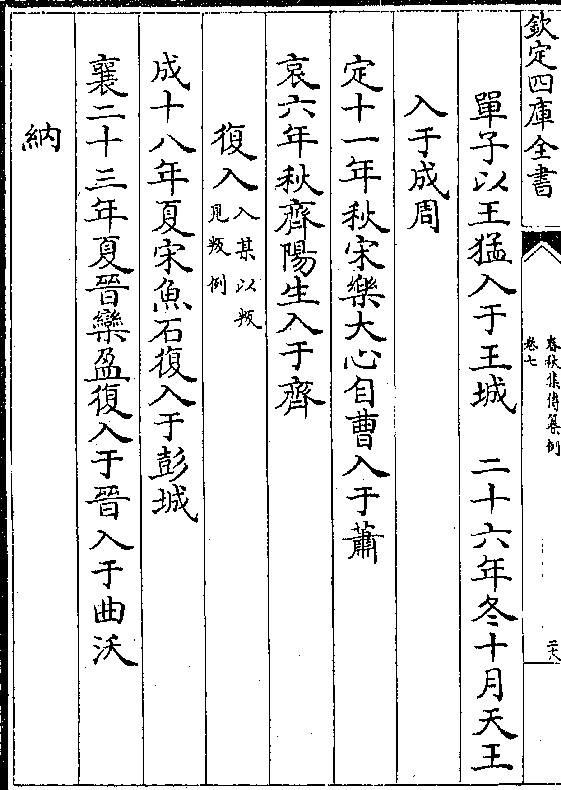 欽定四庫全書
春秋集傳纂例
卷七
二六
單子以王猛入于王城　二十六年冬十月天王
入于成周
定十一年秋宋樂大心自曹入于蕭
哀六年秋齊陽生入于齊
復入入某以叛
見叛例
成十八年夏宋魚石復入于彭城
襄二十三年夏晉欒盈復入于晉入于曲沃
納